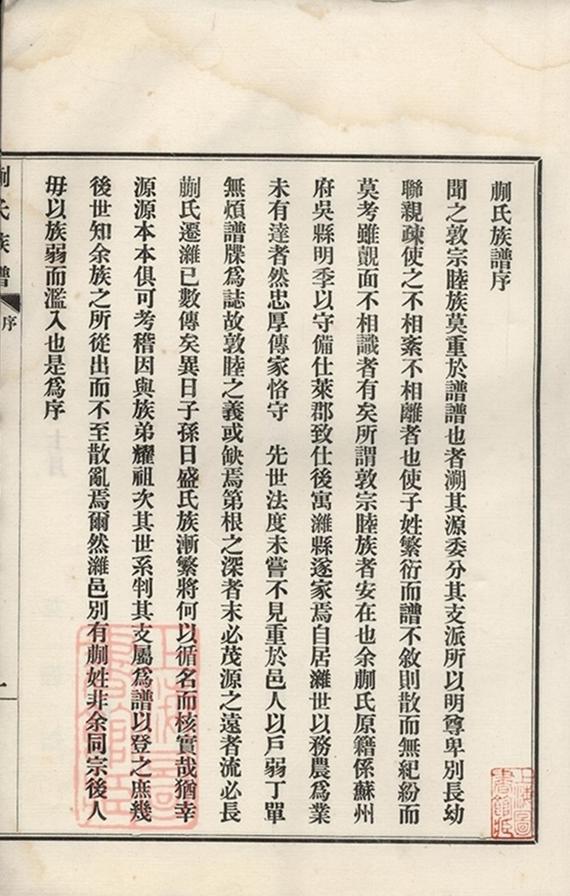 蒯氏族譜序
聞之敦宗睦族莫重於譜譜也者溯其源委分其支派所以明尊卑別長幼
聯親疎使之不相紊不相離者也使子姓繁衍而譜不敘則散而無紀紛而
莫考雖覿面不相識者有矣所謂敦宗睦族者安在也余蒯氏原籍係蘇州
府吳縣明季以守備仕萊郡致仕後寓濰縣遂家焉自居濰世以務農為業
未有達者然忠厚傳家恪守　先世法度未嘗不見重於邑人以戶弱丁單
無煩譜牒為誌故敦睦之義或缺焉第根之深者末必茂源之遠者流必長
蒯氏遷濰已數傳矣異日子孫日盛氏族漸繁將何以循名而核實哉猶幸
源源本本俱可考稽因與族弟耀祖次其世系判其支屬為譜以登之庶幾
後世知余族之所從出而不至散亂焉爾然濰邑別有蒯姓非余同宗後人
毋以族弱而濫入也是為序
蒯氏族譜
序
一
上海圖書館藏